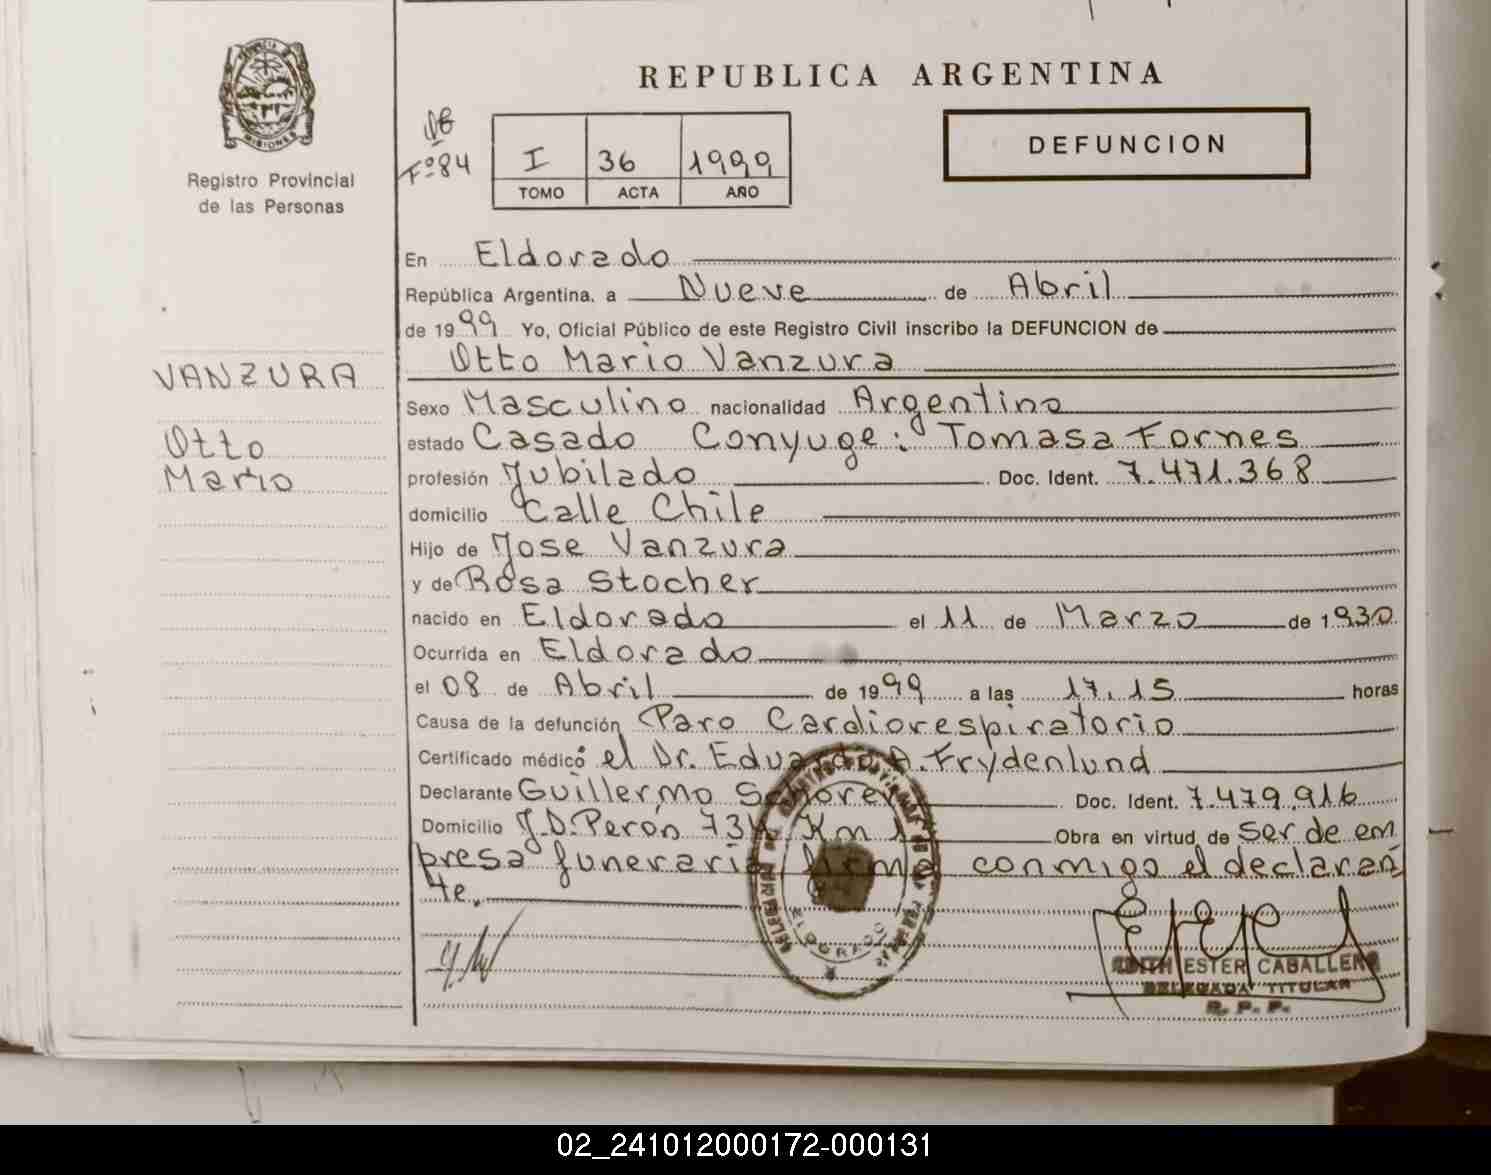 REPUBLICA ARGENTINA
MISIONES
Registro Provincial
de las Personas
Fº 84
I 36 1999
TOMO ACTA AÑO
DEFUNCION
En Eldorado
República Argentina, a Nueve de Abril
de 1999 Yo, Oficial Público de este Registro Civil inscribo la DEFUNCION de
Otto Mario Vanzura
VANZURA
Otto
Mario
Sexo Masculino nacionalidad Argentino
estado Casado Conyuge: Tomasa Fornes
profesión Jubilado Doc. Ident. 7.471.368
domicilio Calle Chile
Hijo de Jose Vanzura
y de Rosa Stocher
nacido en Eldorado el 11 de Marzo de 1930
Ocurrida en Eldorado
el 08 de Abril de 1999 a las 17,15 horas
Causa de la defunción Paro Cardiorespiratorio
Certificado médico el Dr. Eduardo A. Frydenlund
Declarante Guillermo Doc. Ident. 7.479.916
Domicilio J.D.Perón Km Obra en virtud de ser de em
presa funeraria firma conmigo el declaran
te.
ELDORADO
EDITH ESTER CABALLERO
DELEGADA TITULAR
R. P. P.
02_241012000172-000131